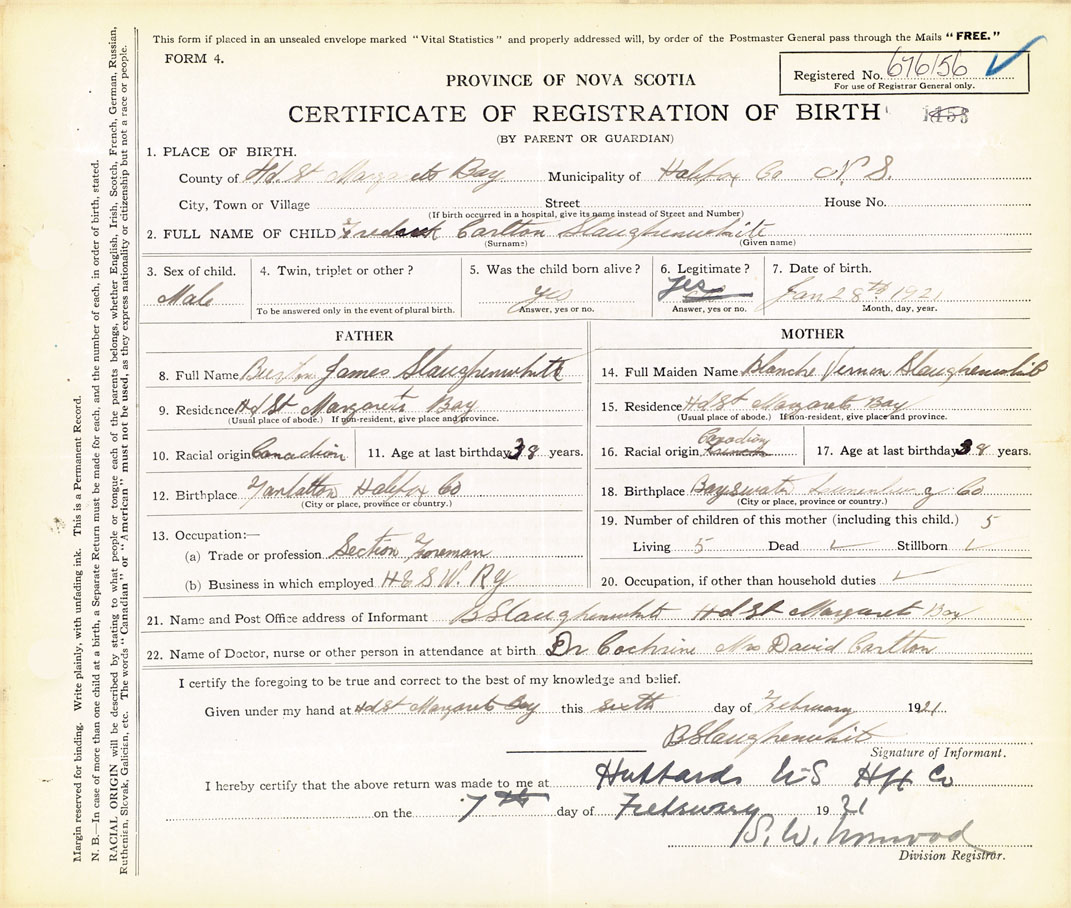 This form if placed in an unsealed envelope marked "Vital Statistics" and properly addressed will, by order of the Postmaster General pass through the Mails "FREE."
FORM 4.
Registered No. 676156
For use of Registrar General only.
PROVINCE OF NOVA SCOTIA
CERTIFICATE OF REGISTRATION OF BIRTH
(BY PARENT OR GUARDIAN)
1. PLACE OF BIRTH.
County of Hd. St Margarets Bay Municipality of Halifax Co N. S.
City, Town or Village Street House No.
(If birth occurred in a hospital, give its name instead of Street and Number)
2. FULL NAME OF CHILD Carlton Slaughenwhite
(Surname) (Given name)
3. Sex of child. 4. Twin, triplet or other? 5. Was the child born alive? 6. Legitimate? 7. Date of birth.
Male yes yes Jan 28th 1921
To be answered only in the event of plural birth. Answer, yes or no. Answer, yes or no. Month, day, year.
FATHER MOTHER
8. Full Name James Slaughenwhite
14. Full Maiden Name Blanche Vernon Slaughenwhite
9. Residence Hd St Margarets Bay
15. Residence Hd St Margarets Bay
(Usual place of abode.) If non-resident, give place and province.
(Usual place of abode.) If non-resident, give place and province.
10. Racial origin Canadian 11. Age at last birthday 38 years.
16. Racial origin Canadian 17. Age at last birthday 38 years.
12. Birthplace Halifax Co
18. Birthplace Bayswater Co
(City or place, province or country.)
(City or place, province or country.)
13. Occupation:—
19. Number of children of this mother (including this child.) 5
(a) Trade or profession Section Foreman
Living 5 Dead ✓ Stillborn ✓
(b) Business in which employed H & S W. Ry
20. Occupation, if other than household duties ✓
21. Name and Post Office address of Informant B Slaughenwhite Hd St Margaret Bay
22. Name of Doctor, nurse or other person in attendance at birth Dr Cochrine Mrs David Carlton
I certify the foregoing to be true and correct to the best of my knowledge and belief.
Given under my hand at Hd St Margarets Bay this sixth day of February 1921
B Slaughenwhite
Signature of Informant.
I hereby certify that the above return was made to me at Hubbards N S Hfx Co
on the 7th day of February 1921
Division Registrar.
Margin reserved for binding. Write plainly, with unfading ink. This is a Permanent Record.
N. B.—In case of more than one child at a birth, a Separate Return must be made for each, and the number of each, in order of birth, stated.
RACIAL ORIGIN will be described by stating to what people or tongue each of the parents belongs, whether English, Irish, Scotch, French, German, Russian,
Ruthenian, Slovak, Galician, etc. The words "Canadian" or "American" must not be used, as they express nationality or citizenship but not a race or people.